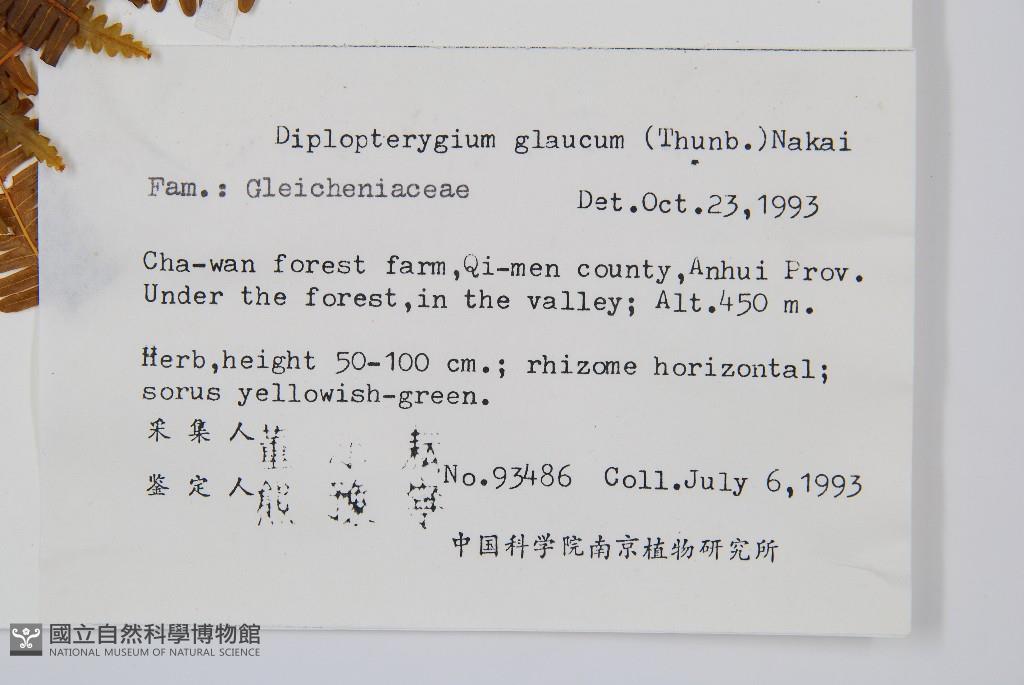 Diplopterygium glaucum (Thunb.)Nakai
Fam.: Gleicheniaceae
Det.Oct.23,1993
Cha-wan forest farm,Qi-men county,Anhui Prov.
Under the forest,in the valley; Alt.450 m.
Herb,height 50-100 cm.; rhizome horizontal;
sorus yellowish-green.
采集人
鉴定人
No.93486 Coll.July 6,1993
中国科学院南京植物研究所
國立自然科學博物館
NATIONAL MUSEUM OF NATURAL SCIENCE